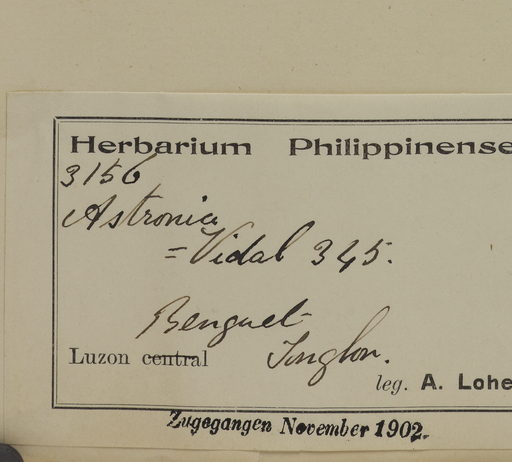 Herbarium Philippinense
3156
Astronia
= Vidal 345.
Benguet
Luzon central Tonglon.
leg. A. Lohe
Zugegangen November 1902.